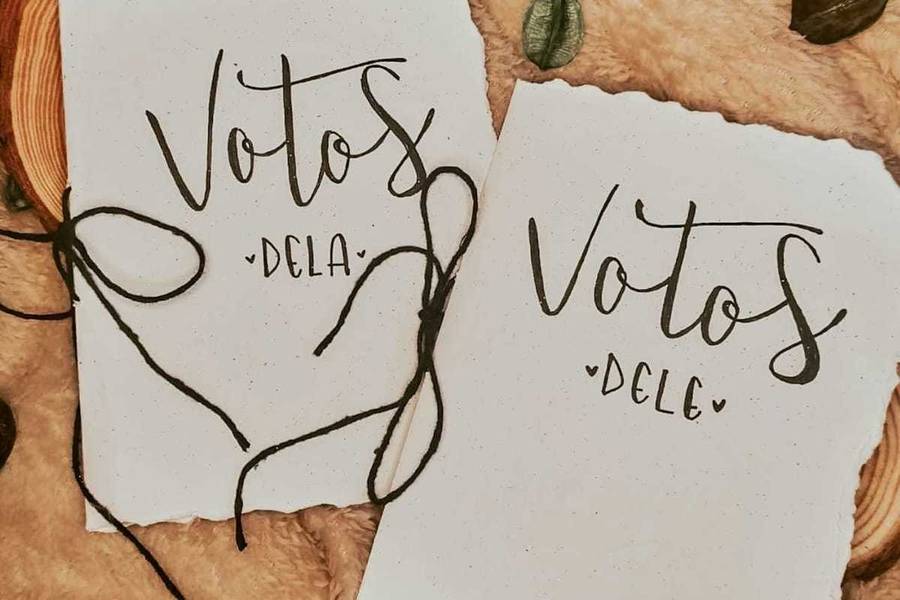 Votos
♥DELA♥
Votos
♥DELE♥